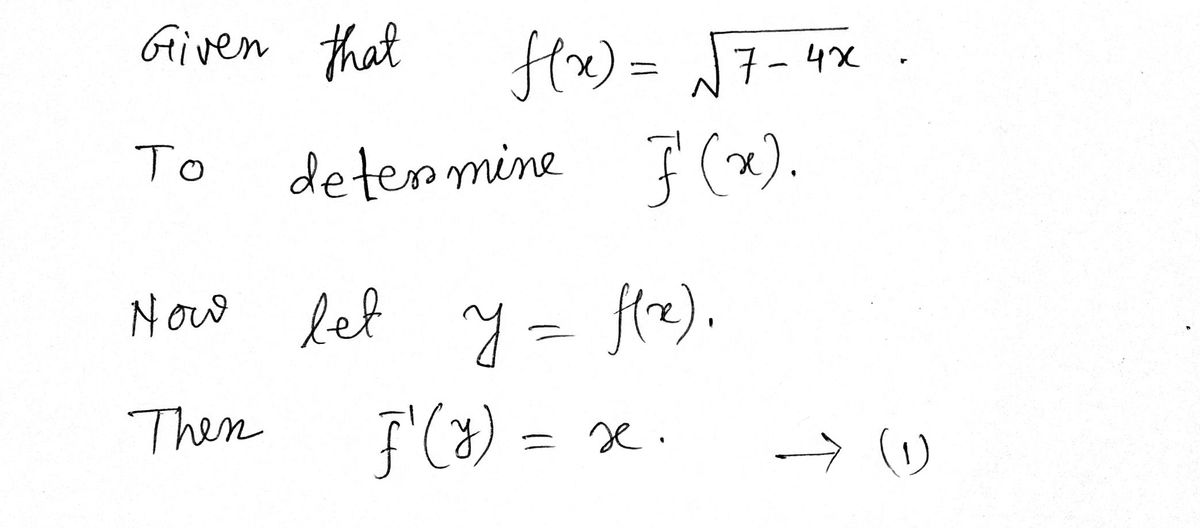 Given that f(x) = √(7-4x) .
To determine f⁻¹(x).
Now let y = f(x).
Then f⁻¹(y) = x. → (1)